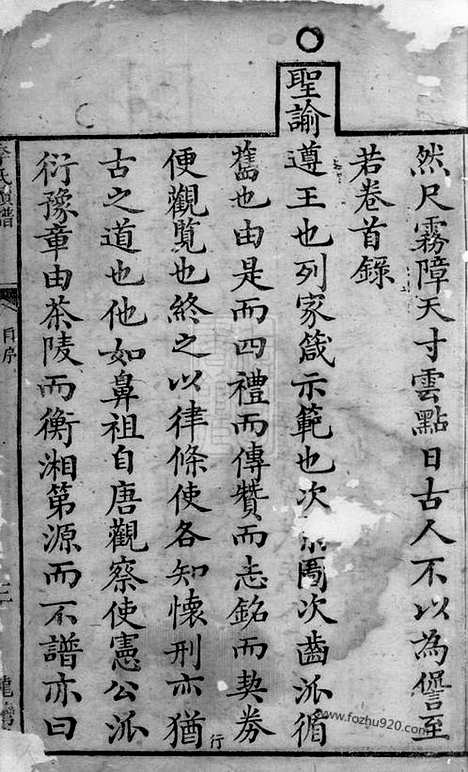 然尺霧障天寸雲點日古人不以為僭至
若卷首錄
聖諭遵王也列家箴示範也次圖次齒派循
舊也由是而四禮而傳贊而志銘而契券
便觀覽也終之以律條使各知懷刑亦猶行
古之道也他如鼻祖自唐觀察使憲公派
衍豫章由茶陵而衡湘第源而不譜亦曰
氏譜
目序
www.fozhu920.com